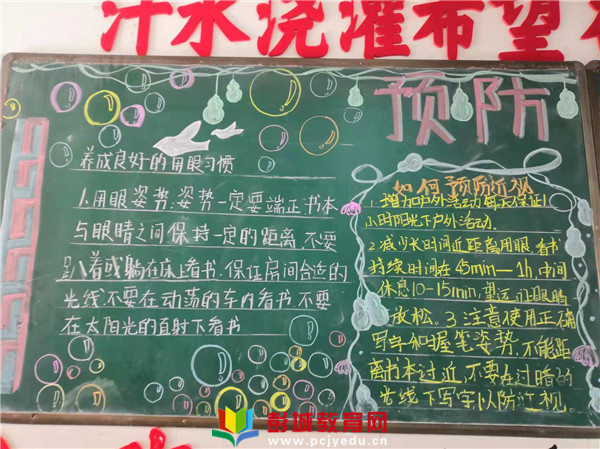 汗水浇灌希望
预防
养成良好的用眼习惯
1.用眼姿势:姿势一定要端正书本
与眼睛之间保持一定的距离,不要
趴着或躺在床上看书.保证房间合适的
光线.不要在动荡的车内看书.不要
在太阳光的直射下看书
如何预防近视
1.增加户外活动每天保证1
小时阳光下户外活动.
2.减少长时间近距离用眼看书
持续时间在45min—1h,中间
休息10-15min,望远,让眼睛
放松。3.注意使用正确
写字和握笔姿势,不能距
离书本过近,不要在过暗的
光线下写字以防近视.
彭城教育网
www.pcjyedu.cn